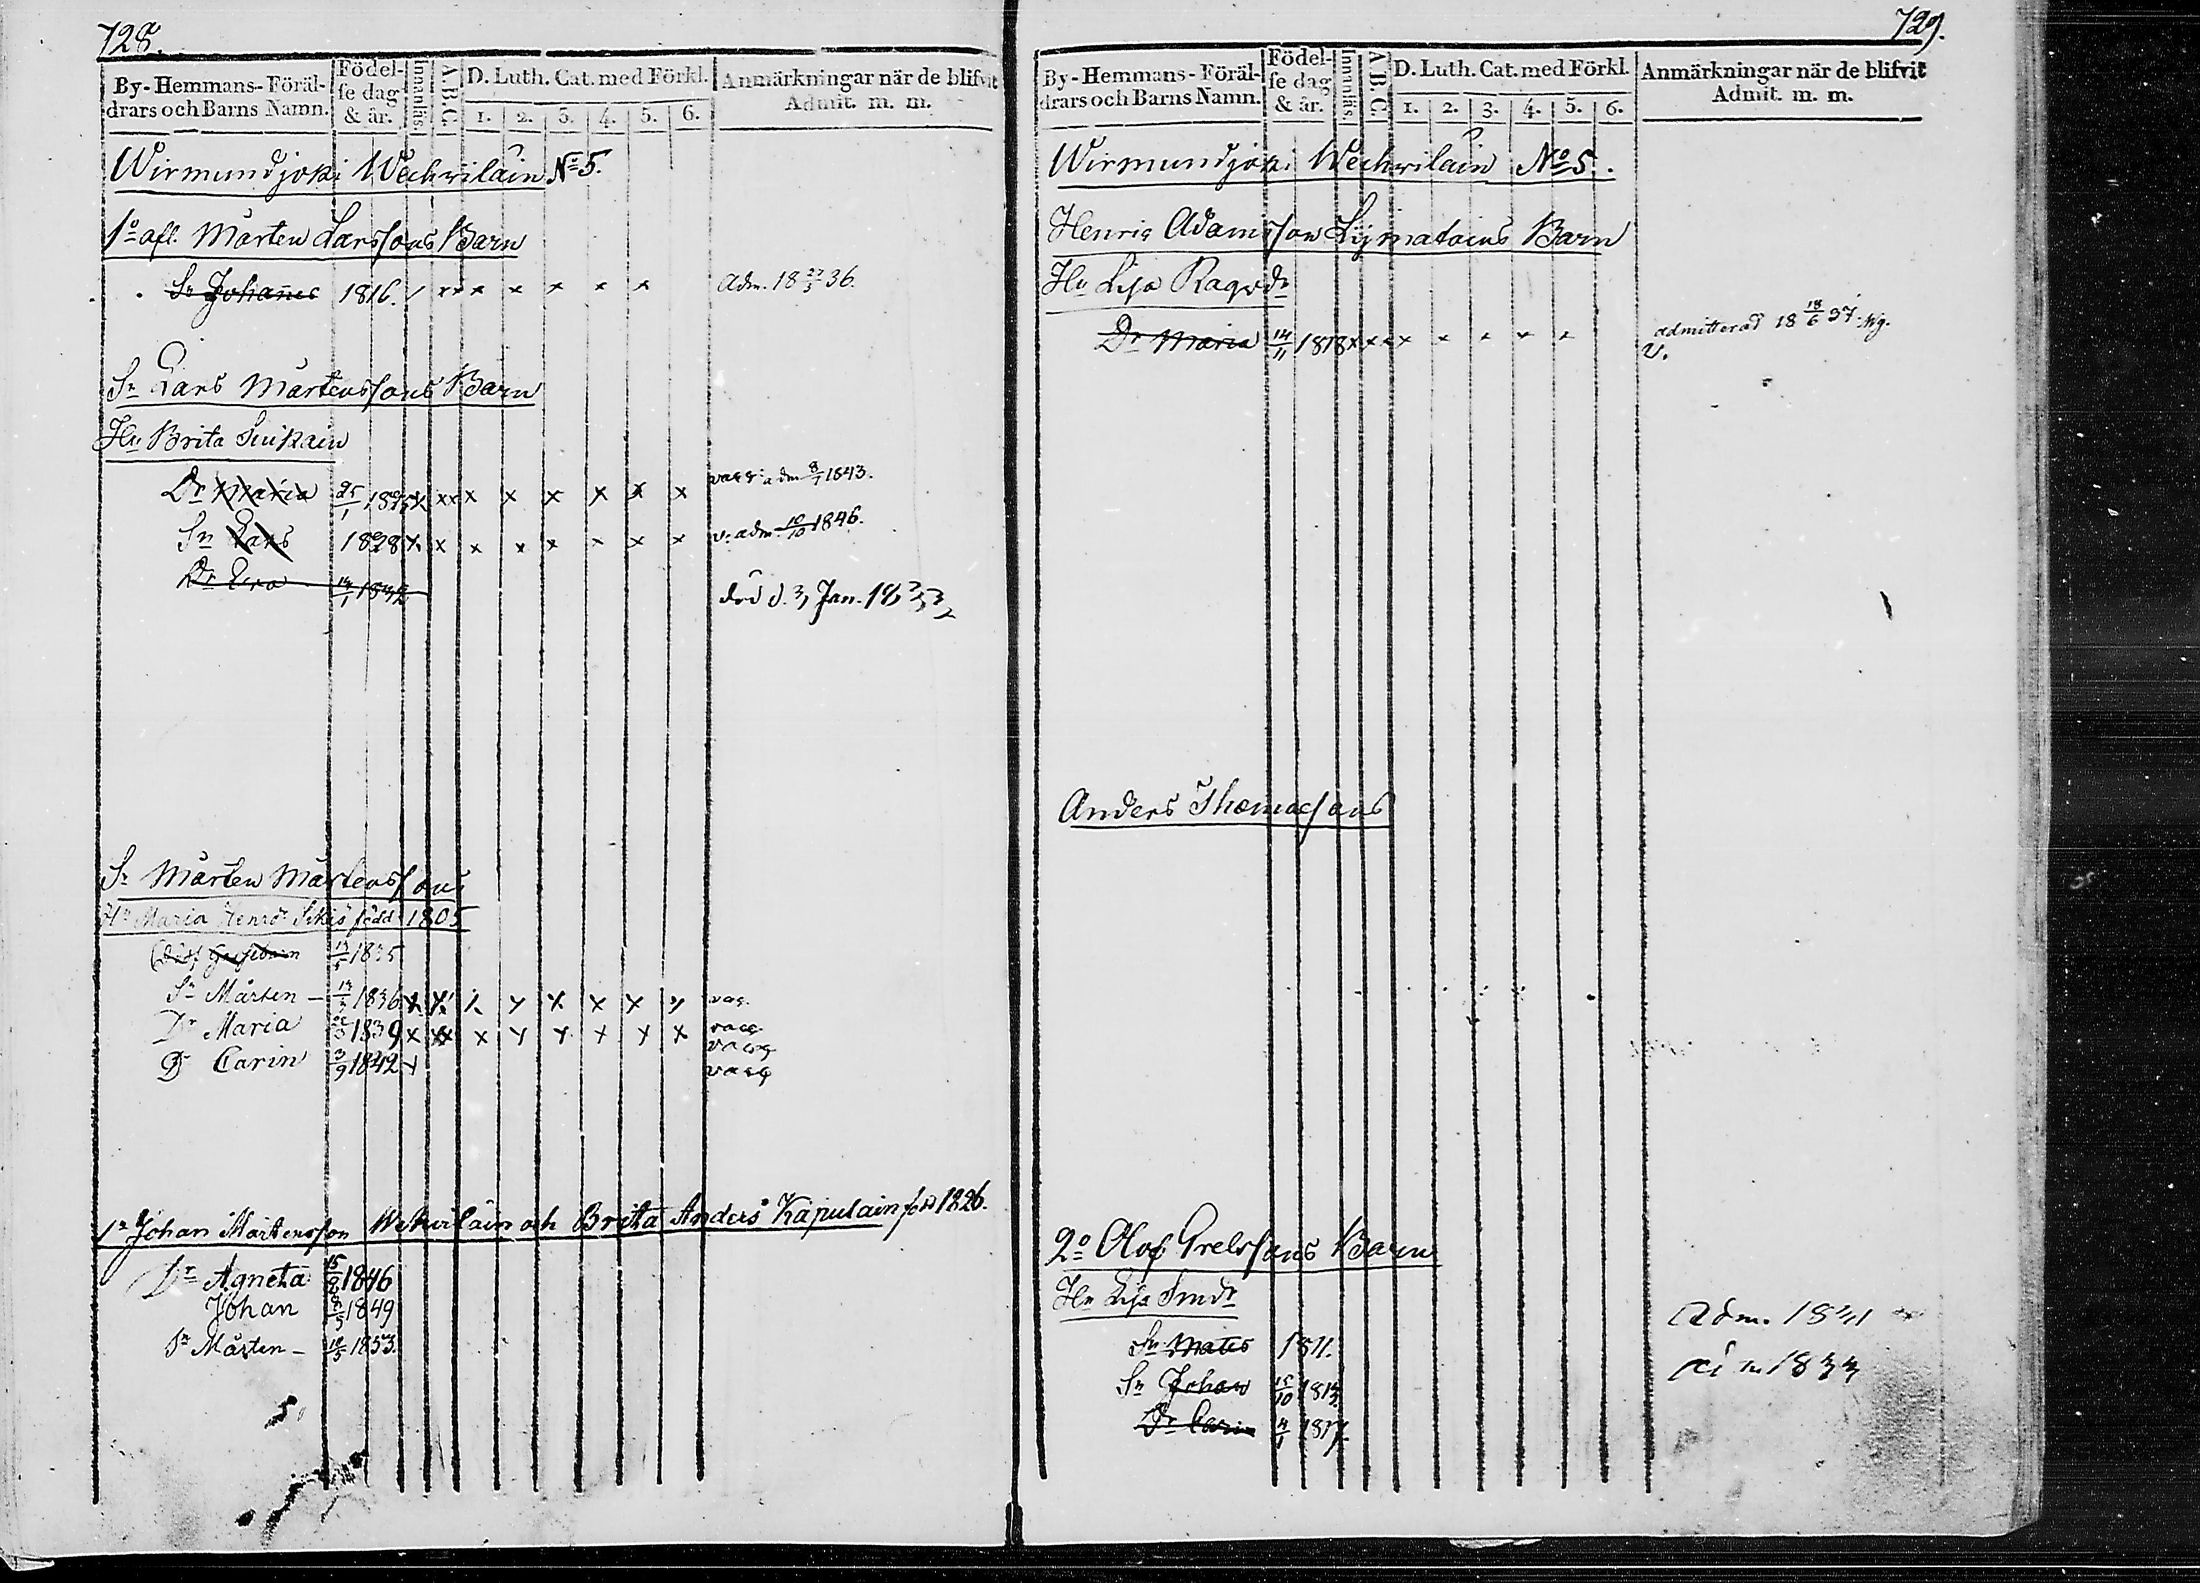 728.
By-Hemmans-Föräl-
drars och Barns Namn.
Födel-
se dag
& år.
Innanläs.
A.B.C.
D. Luth. Cat. med Förkl.
1. 2. 3. 4. 5. 6.
Anmärkningar när de blifvit
Admit. m. m.
Wirmundjoki Wechvilain No 5.
1o afl. Mårten Larssons Barn
Sn Johannes 1816. / x x x x x x x Adm. 18 27/3 36.
Sn Lars Mårtenssons Barn
Hu Brita Sinikain
Dr Maria 25/1 1825 x xx x x x x x x vacc: adm 8/7 1843.
Sn Lars 1828 x x x x x x x x v. adm. 10/10 1846.
Dr Eva 14/1 1832 död d. 3 Jan. 1833
Sn Mårten Mårtenssons
Hu Maria Henrsdr född 1805
1835
Sn Mårten – 1836 x x x x x x x x vac.
Dr Maria 1839 x xx x x x x x x vacc
Dr Carin 3/9 1842 x vacc
Sn Johan Mårtensson Wekvilain och Brita Andersdr Kapulain född 1826.
Dr Agneta 15/8 1846
Johan 1849
Sn Mårten – 18/5 1853.
729.
By-Hemmans-Föräl-
drars och Barns Namn.
Födel-
se dag
& år.
Innanläs.
A.B.C.
D. Luth. Cat. med Förkl.
1. 2. 3. 4. 5. 6.
Anmärkningar när de blifvit
Admit. m. m.
Wirmundjoki Wechvilain No 5.
Henric Adamsson Lymatains Barn
Hu Lisa Ragvdr
Dr Maria 14/11 1818 x x x x x x x x x admitterad 18 18/6 37.
v.
Anders Thomassons
2o Olof Grelssons Barn
Hu Lisa Simdr
Sn Mats 1811. Adm. 1831
Sn Johan 15/10 1813 1833
Dr Carin 4/1 1817.